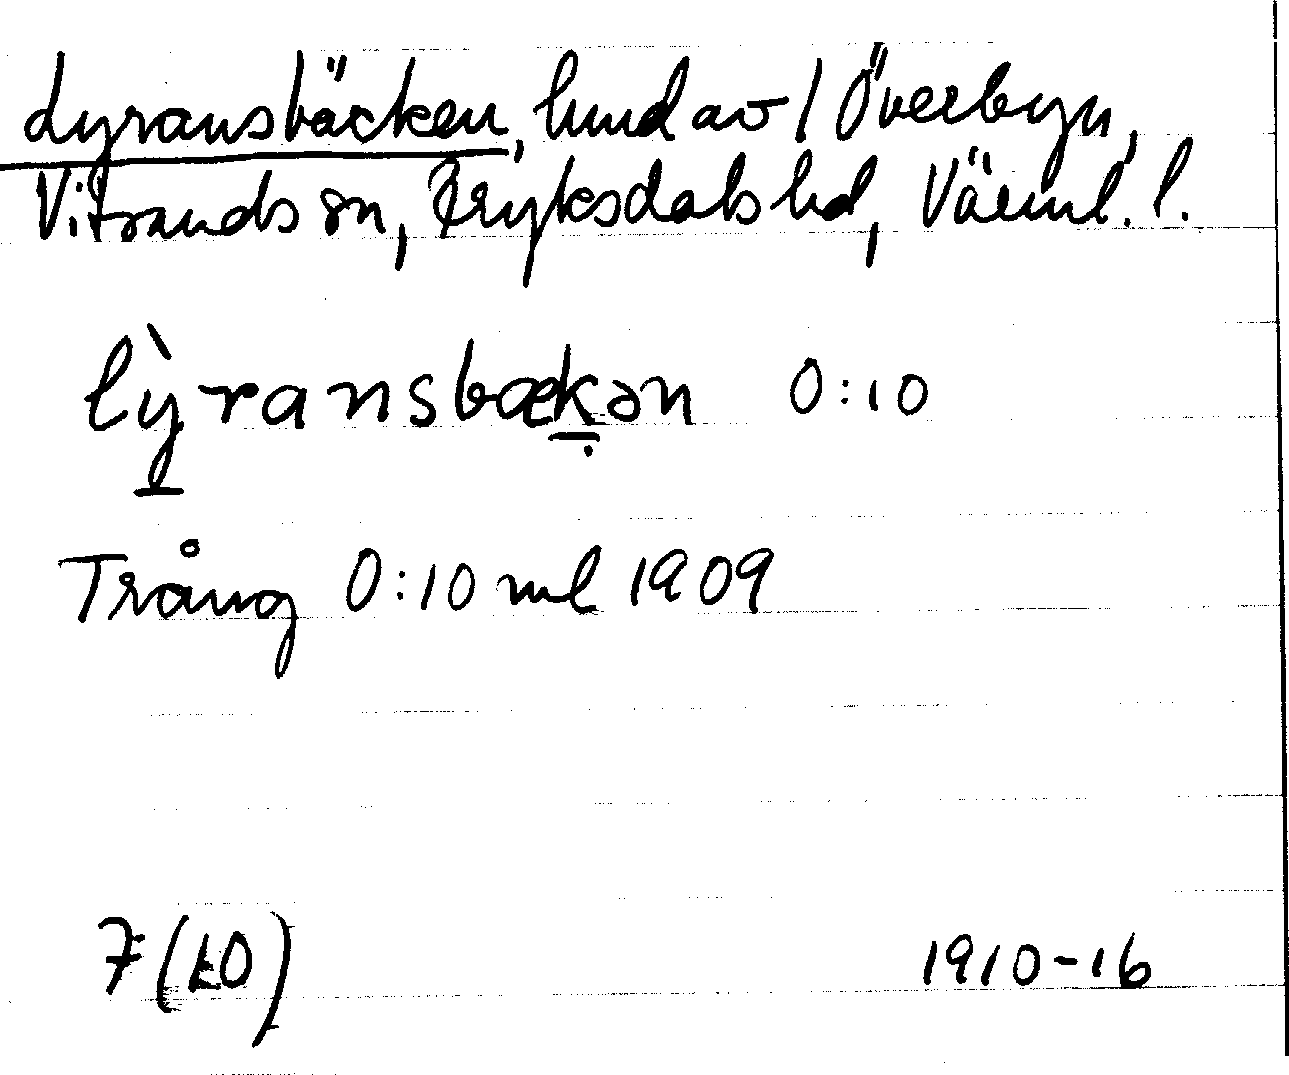 Lyransbäcken, hmd av 1 Överbyn,
Vitsands sn, Fryksdals hd, Värml. l.
lỳransbækən 0:10
Trång 0:10 ml 1909
7 (LO) 1910-16